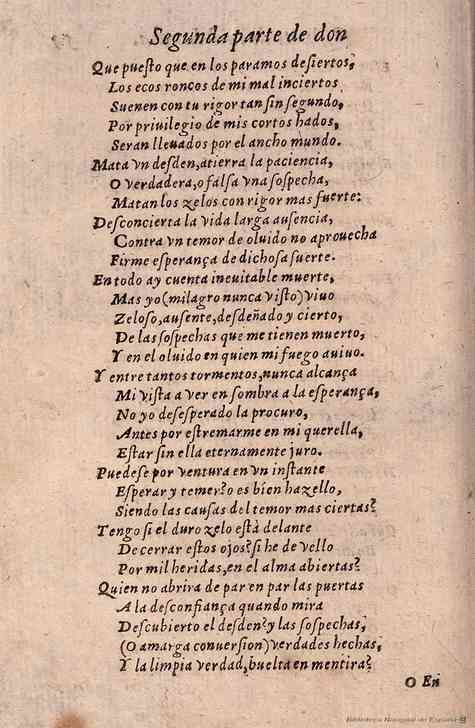 Segunda parte de don
Que puesto que en los paramos desiertos,
Los ecos roncos de mi mal inciertos
Suenen con tu rigor tan sin segundo,
Por priuilegio de mis cortos hados,
Seran lleuados por el ancho mundo.
Mata vn desden, atierra la paciencia,
O verdadera, o falsa vna sospecha,
Matan los zelos con rigor mas fuerte:
Desconcierta la vida larga ausencia,
Contra vn temor de oluido no aprouecha
Firme esperança de dichosa suerte.
En todo ay cuenta ineuitable muerte,
Mas yo (milagro nunca visto) viuo
Zeloso, ausente, desdeñado y cierto,
De las sospechas que me tienen muerto,
Y en el oluido en quien mi fuego auiuo.
Y entre tantos tormentos, nunca alcança
Mi vista a ver en sombra a la esperança,
No yo desesperado la procuro,
Antes por estremarme en mi querella,
Estar sin ella eternamente juro.
Puedese por ventura en vn instante
Esperar y temer? o es bien hazello,
Siendo las causas del temor mas ciertas?
Tengo si el duro zelo està delante
De cerrar estos ojos? si he de vello
Por mil heridas, en el alma abiertas?
Quien no abrira de par en par las puertas
A la desconfiança quando mira
Descubierto el desden? y las sospechas,
(O amarga conuersion) verdades hechas,
Y la limpia verdad, buelta en mentira?
O En
Biblioteca Nacional de España